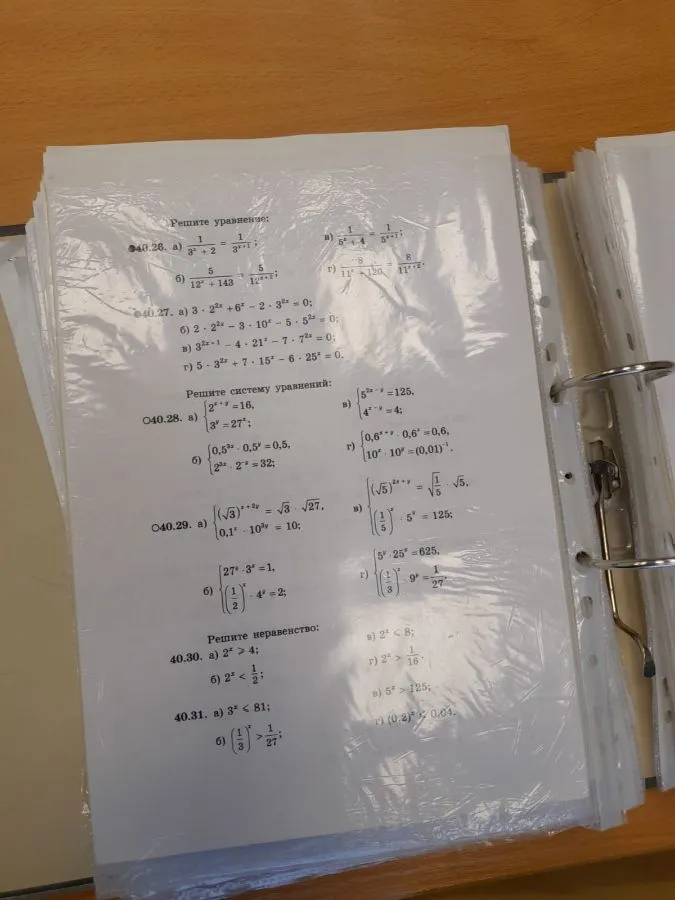 Решите уравнение:
40.26. а) 1/(3^x + 2) = 1/3^(x+1); в) 1/(5^x + 4) = 1/5^(x+1);
б) 5/(12^x + 143) = 5/12^(x+2); г) 8/(11^x + 120) = 8/11^(x+2).
40.27. а) 3 · 2^(2x) + 6^x − 2 · 3^(2x) = 0;
б) 2 · 2^(2x) − 3 · 10^x − 5 · 5^(2x) = 0;
в) 3^(2x+1) − 4 · 21^x − 7 · 7^(2x) = 0;
г) 5 · 3^(2x) + 7 · 15^x − 6 · 25^x = 0.
Решите систему уравнений:
○40.28. а) { 2^(x+y) = 16, 3^y = 27^x; в) { 5^(2x−y) = 125, 4^(x−y) = 4;
б) { 0,5^(3x) · 0,5^y = 0,5, 2^(3x) · 2^(−y) = 32; г) { 0,6^(x+y) · 0,6^x = 0,6, 10^x · 10^y = (0,01)^(−1).
○40.29. а) { (√3)^(x+2y) = √3 · √27, 0,1^x · 10^(3y) = 10; в) { (√5)^(2x+y) = √(1/5) · √5, (1/5)^x · 5^x = 125;
б) { 27^y · 3^x = 1, (1/2)^x · 4^y = 2; г) { 5^y · 25^x = 625, (1/3)^x · 9^y = 1/27.
Решите неравенство:
40.30. а) 2^x ⩾ 4; в) 2^x ⩽ 8;
б) 2^x < 1/2; г) 2^x > 1/16.
40.31. а) 3^x ⩽ 81; в) 5^x > 125;
б) (1/3)^x > 1/27; г) (0,2)^x ⩽ 0,04.